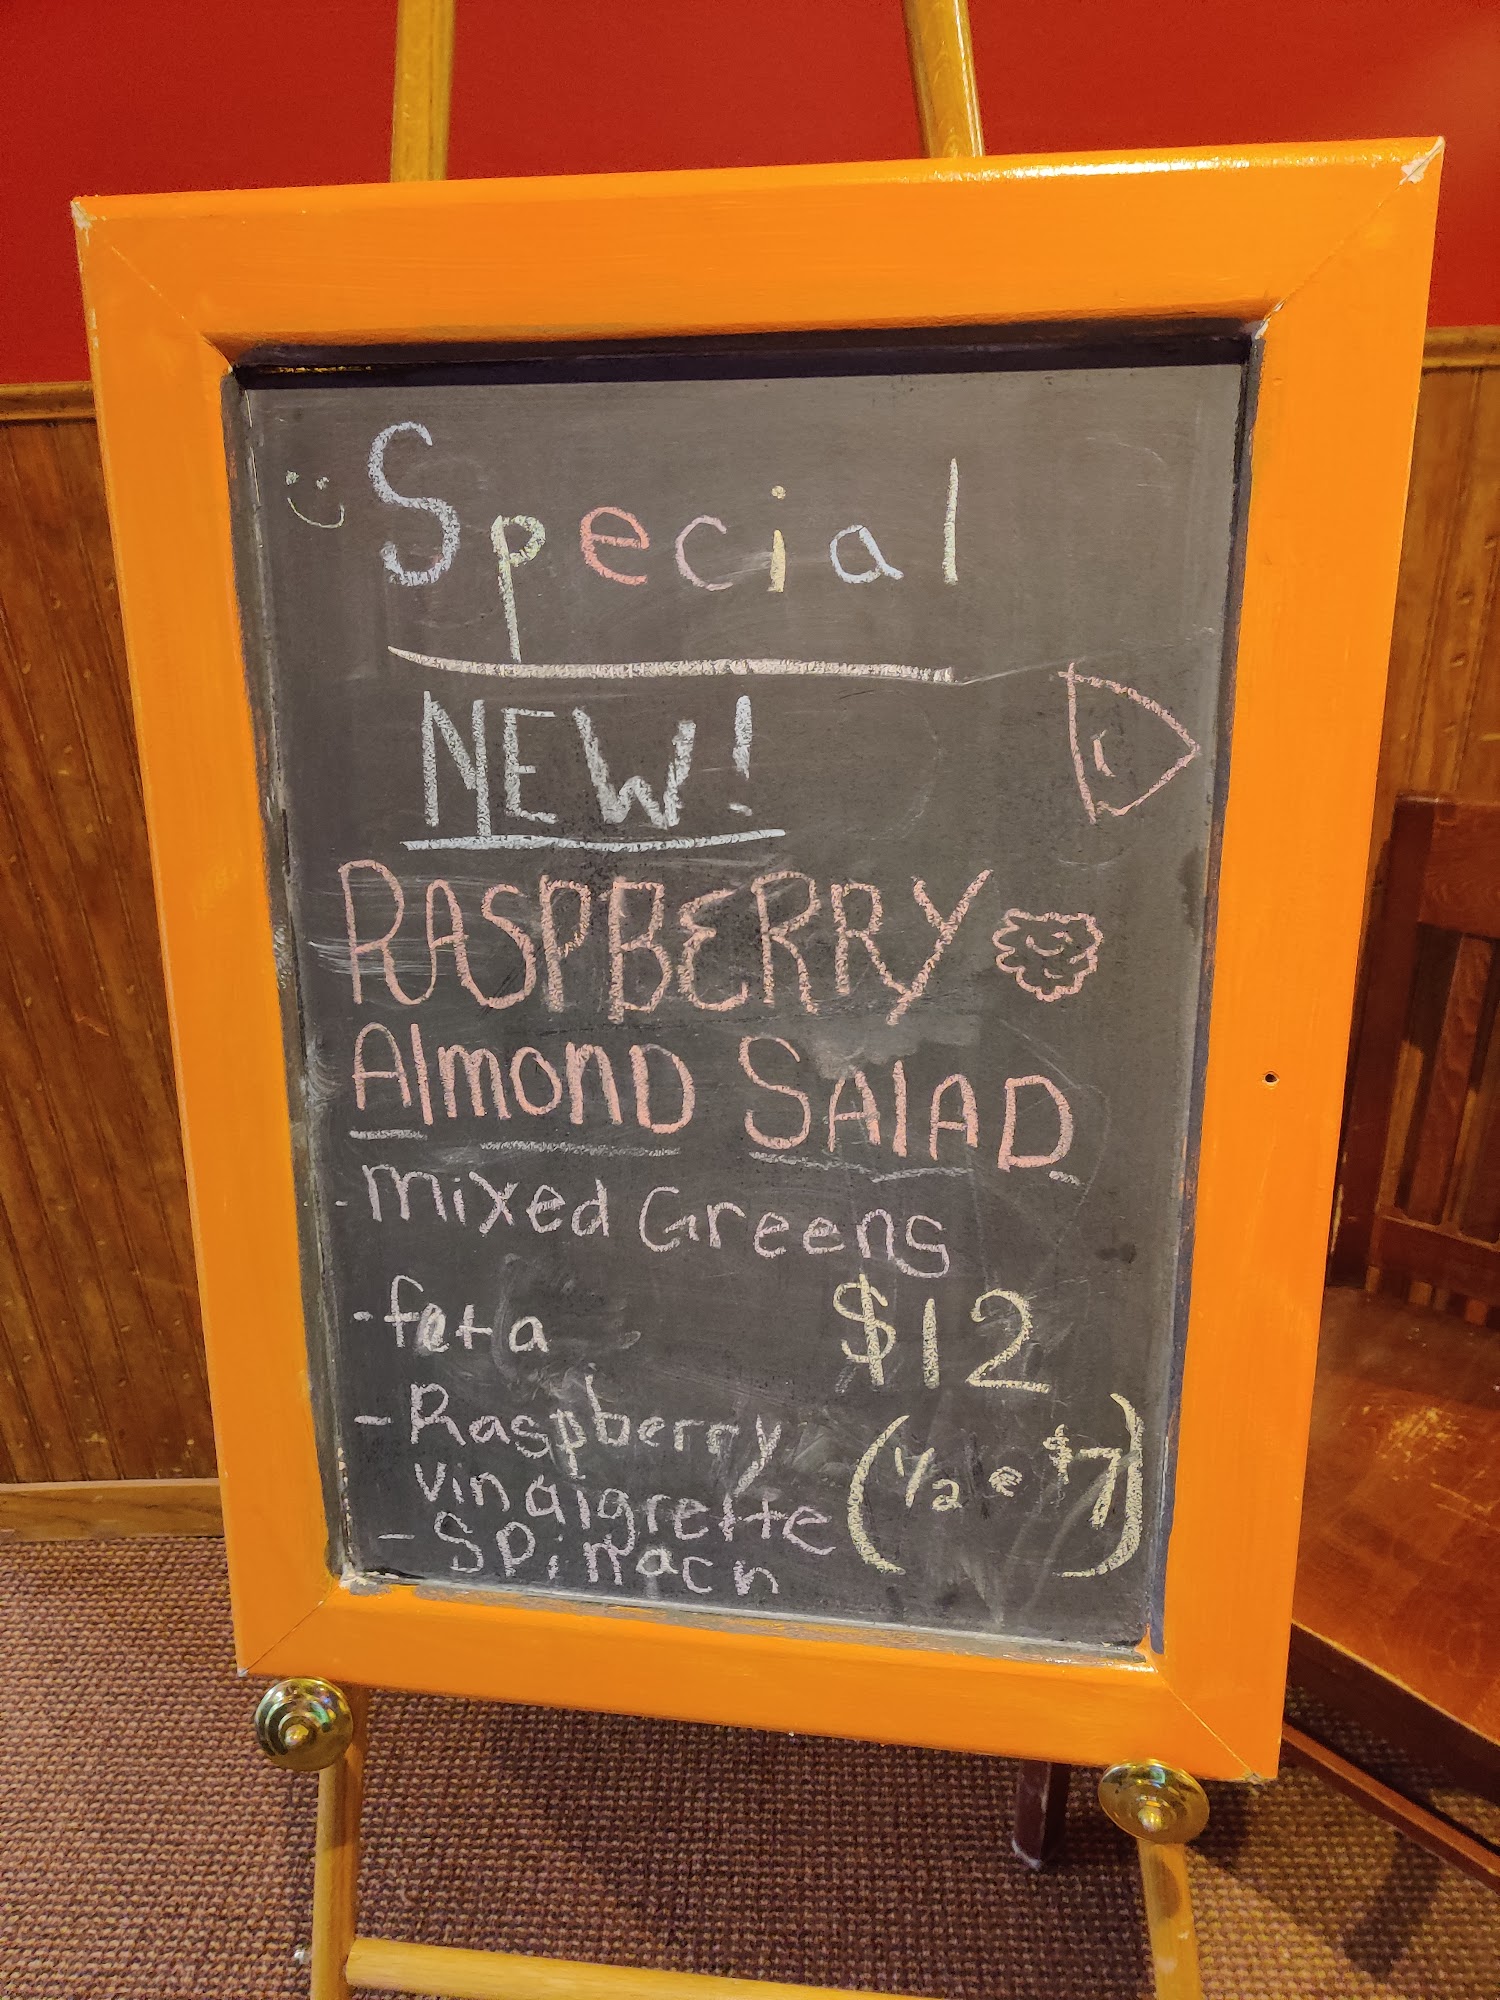 Special
NEW!
RASPBERRY
AlmonD SAlAD
- mixed Greens
- feta
$12
- Raspberry
vinaigrette
(1/2 @ $7)
- Spinach